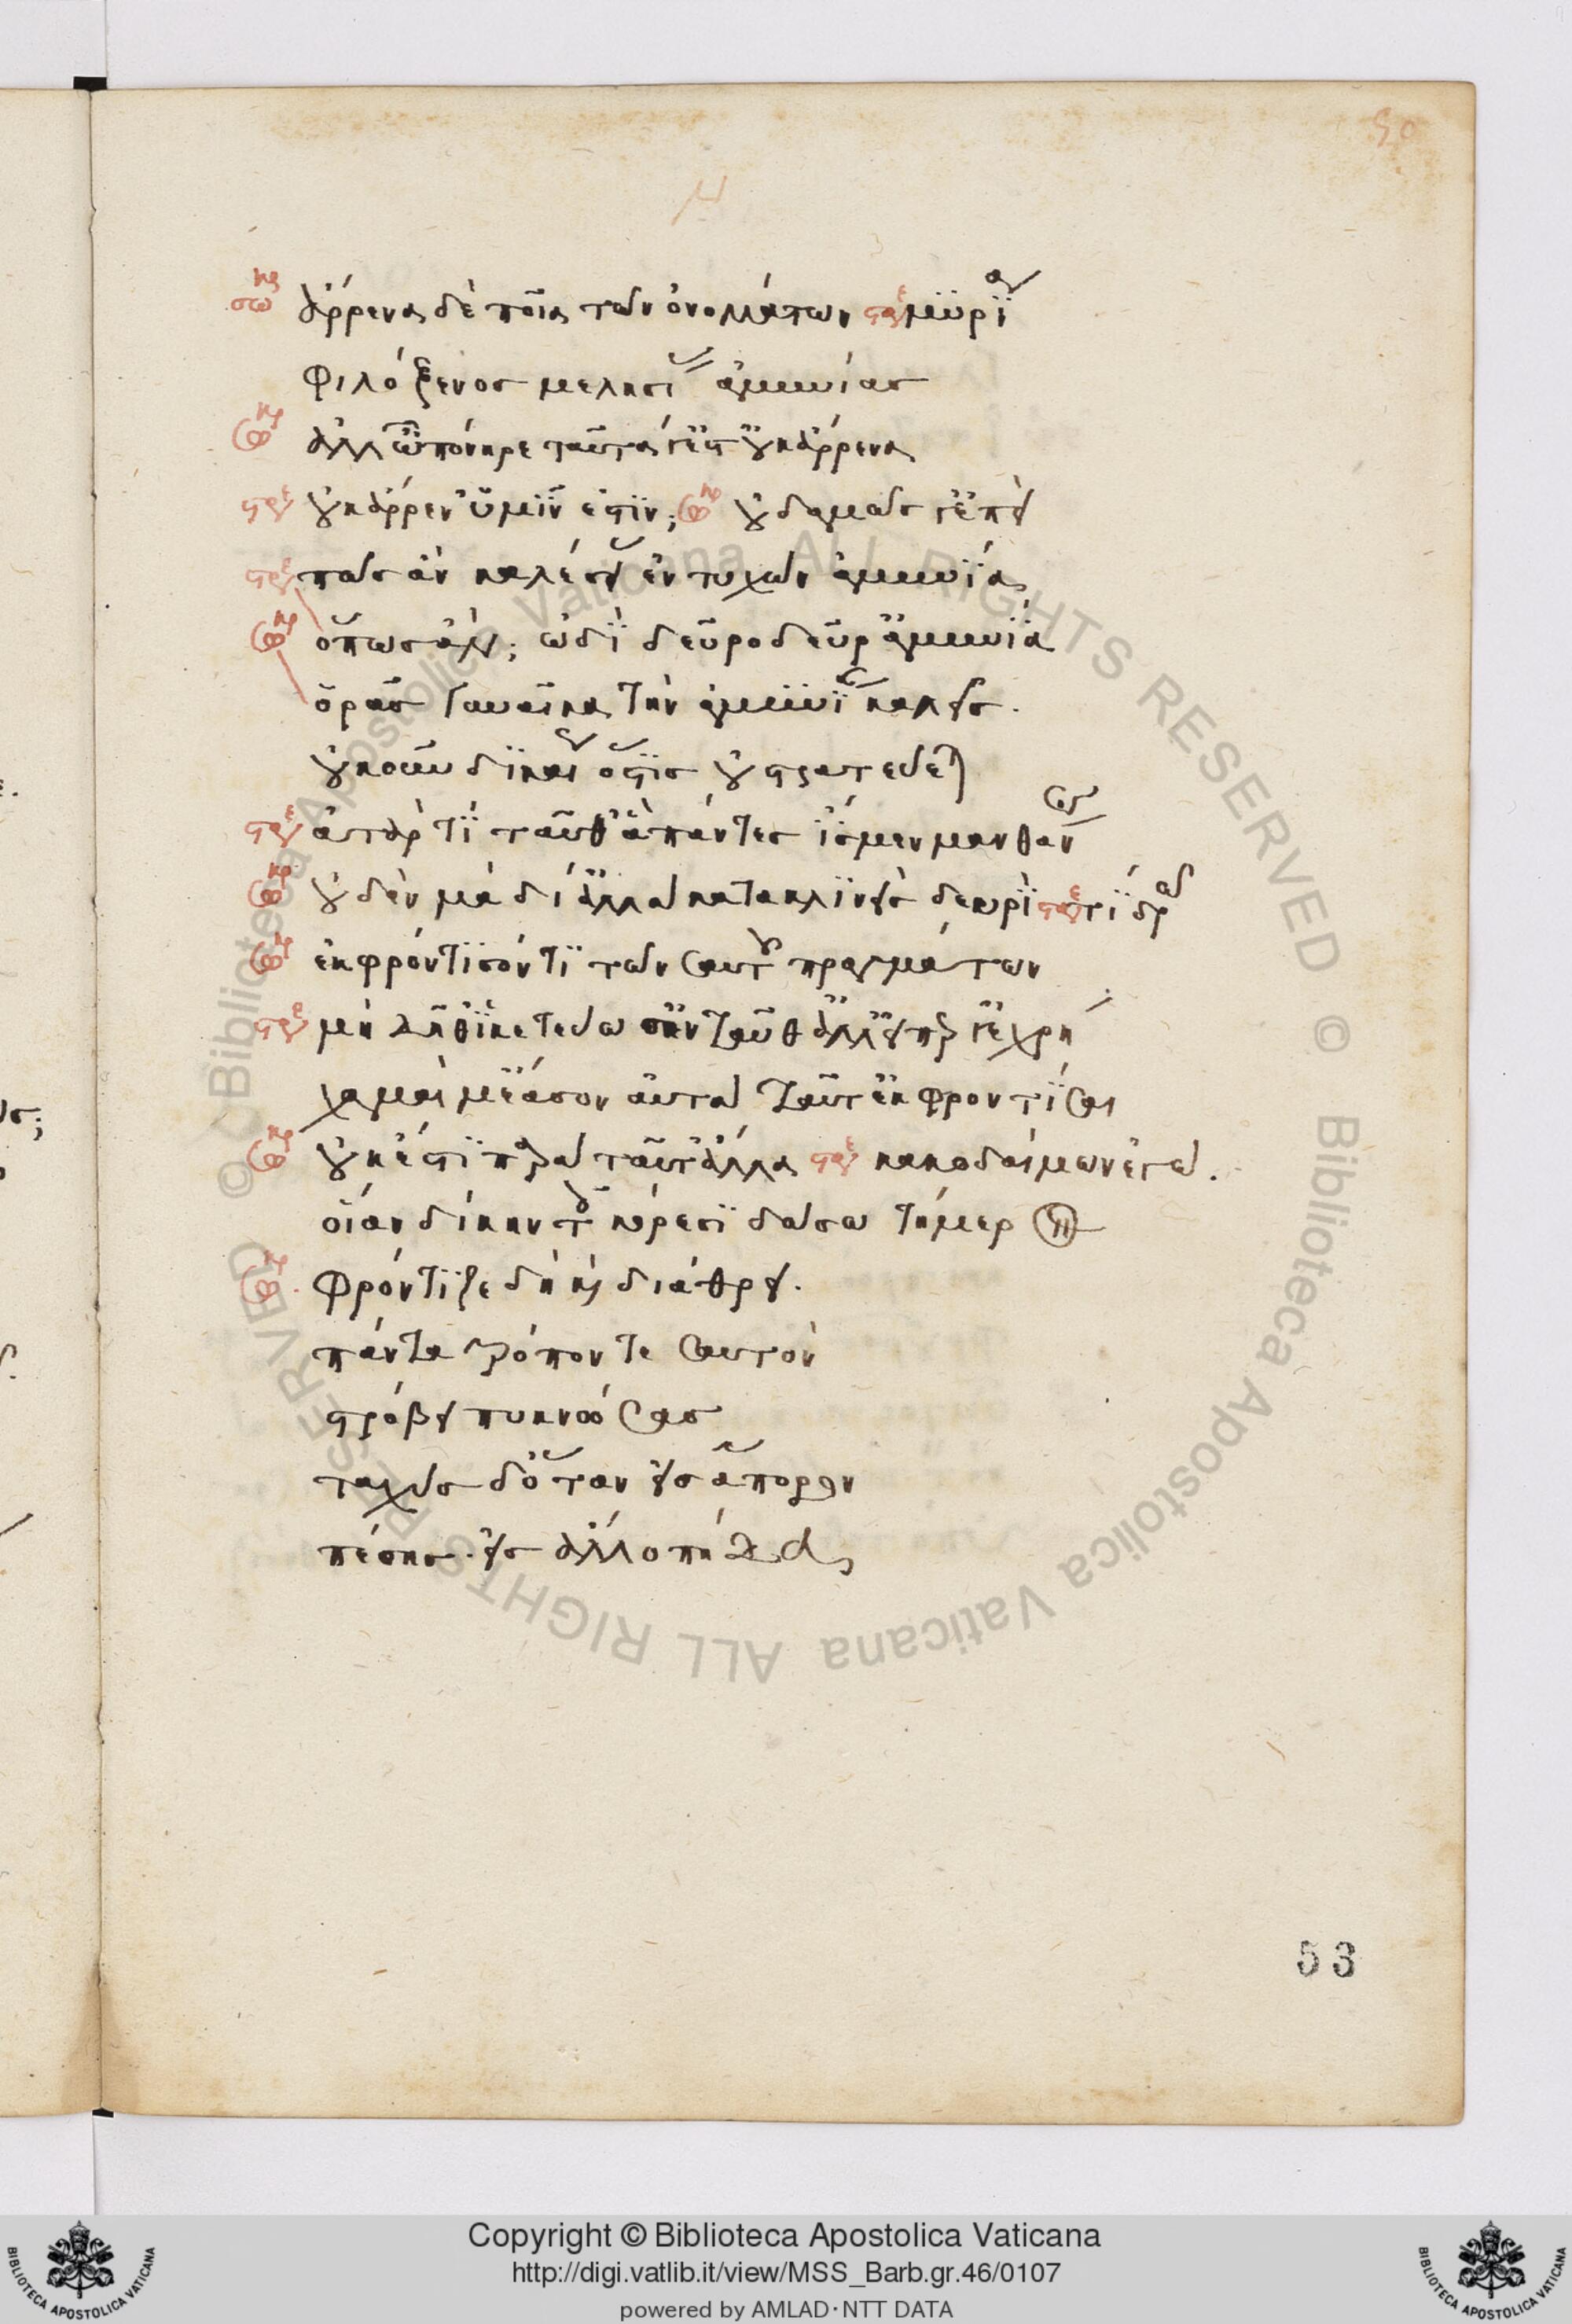 50
σωκρ ἄρρενα δὲ ποῖα τῶν ὀνομάτων στρε μυρία
φιλόξενος μελησίας ἀμυνίας
σωκρ ἀλλ' ὦ πόνηρε ταῦτά γ' ἔστ' οὐκ ἄρρενα
στρε οὐκ ἄρρεν' ὑμῖν ἐστιν; σωκρ οὐδαμῶς γ' ἐπεὶ
στρε πῶς ἂν καλέσει ἐντυχὼν ἀμυνία
σωκρ ὅπως ἄν; ὡδὶ δεῦρο δεῦρ' ἀμυνία
ὁρᾷς γυναῖκα τὴν ἀμυνίαν καλεῖς.
οὔκουν δικαίως ὅστις οὐ στρατεύεται
στρε ἀτὰρ τί ταῦθ' ἃ πάντες ἴσμεν μανθάνω
σωκρ οὐδὲν μὰ δί' ἀλλὰ κατακλινεὶς δευρὶ στρε τί δρῶ
σωκρ ἐκφρόντισόν τι τῶν σαυτοῦ πραγμάτων
στρε μὴ δῆθ' ἱκετεύω σ' ἐνταῦθ' ἀλλ' εἴπερ γε χρὴ
χαμαί μ' ἔασον αὐτὰ ταῦτ' ἐκφροντίσαι
σωκρ οὐκ ἔστι παρὰ ταῦτ' ἄλλα στρε κακοδαίμων ἐγώ.
οἵαν δίκην τοῖς κόρεσι δώσω τήμερον
σωκρ φρόντιζε δὴ καὶ διάθρει.
πάντα τρόπον τε σαυτὸν
στρόβει πυκνώσας
ταχὺς δ' ὅταν εἰς ἄπορον
πέσῃς. εἰς ἄλλο πήδα
53
© Biblioteca Apostolica Vaticana ALL RIGHTS RESERVED © Biblioteca Apostolica Vaticana ALL RIGHTS RESERVED
Copyright © Biblioteca Apostolica Vaticana
http://digi.vatlib.it/view/MSS_Barb.gr.46/0107
powered by AMLAD·NTT DATA
BIBLIOTECA APOSTOLICA VATICANA
BIBLIOTECA APOSTOLICA VATICANA